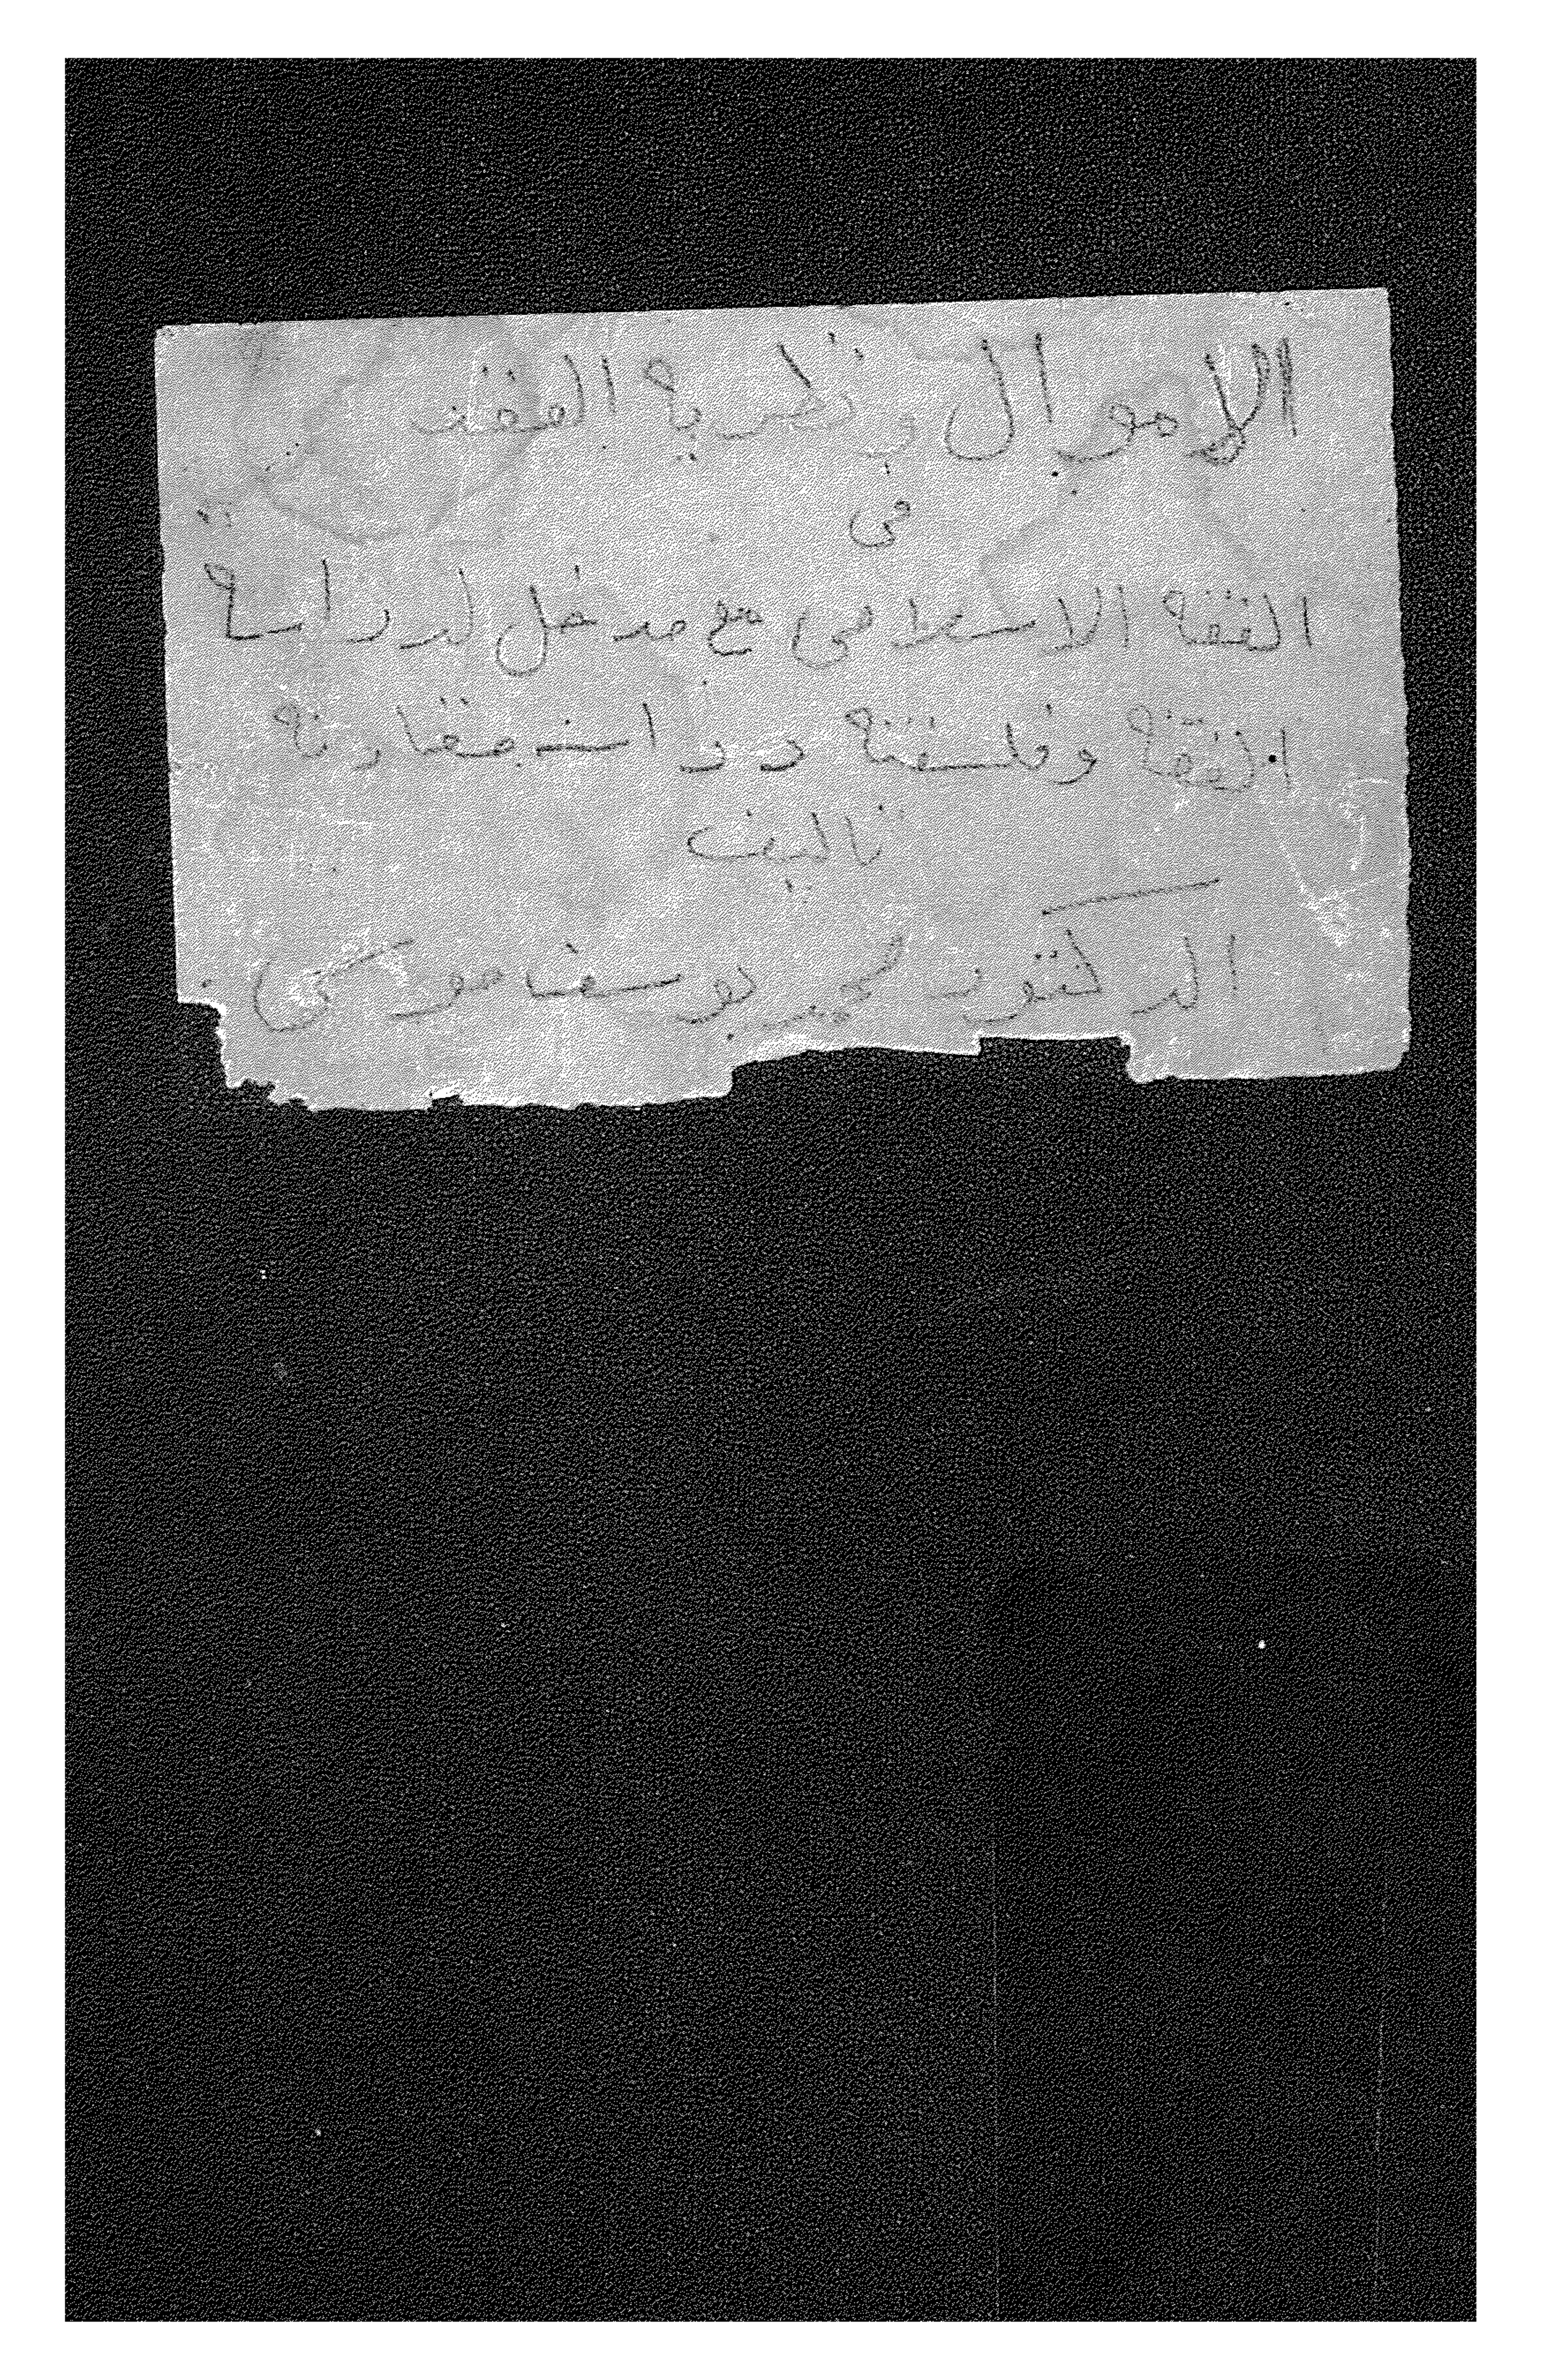 الاموال ونظرية العقد
في
الفقه الاسلامى مع مدخل لدراسة
الفقه وفلسفته دراسة مقارنة
تاليف
الدكتور محمد يوسف موسى